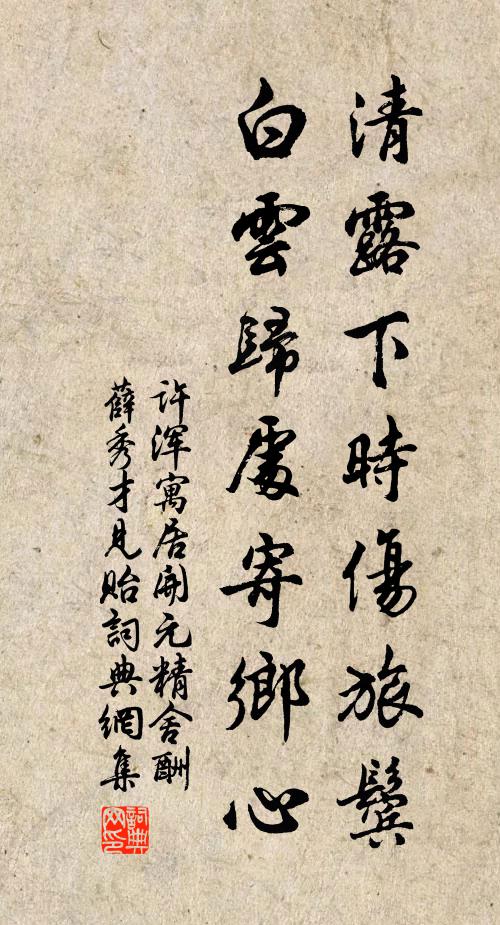 清露下時傷旅鬢
白雲歸處寄鄉心
许浑寓居開元精舍酬
薛秀才見貽詞典網集
詞典
网印